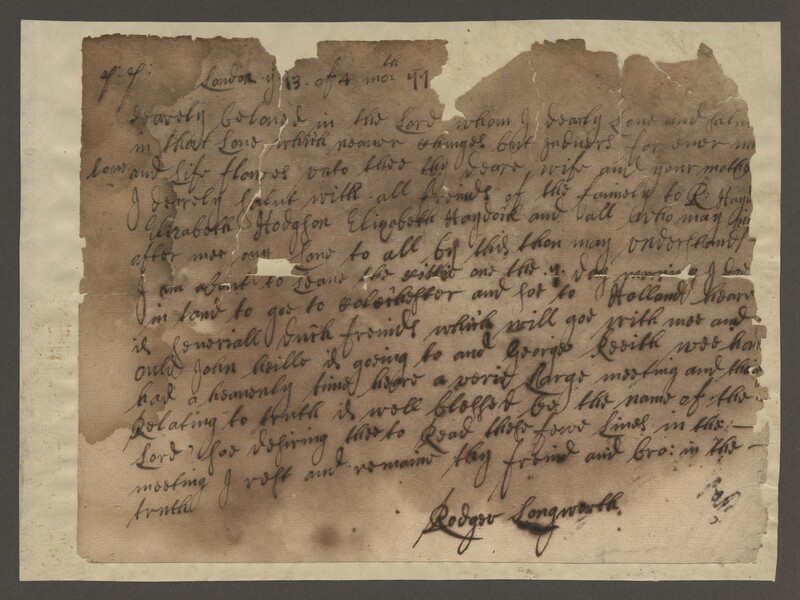 P: P: London ye 13. of 4 moth: 77
dearely beloved in the Lord whom I dearly Love and salut
in that Love which neaver changes but Induers for ever
Love and Life flowes unto thee thy deare wife and your mothe
I dearely salut with all freinds of the famely to R: Hayd
Elizabeth Hodghon Elizabeth Haydock and all who may
after mee my Love to all by this thou may understand
I am about to Leave the sittie one the 4: day morning I doe
in tend to goe to Colechester and soe to Holland heare
is severiall duch freinds which will goe with mee and
ould John heille is going to and George Keeith wee ha
had a heavenly time heare a verie Large meeting and thin
Relating to truth is well blessed be the name of the
Lord soe desiring thee to Read these fewe Lines in the
meeting I rest and remaine thy freind and bro: in the
truth
Rodger Longworth